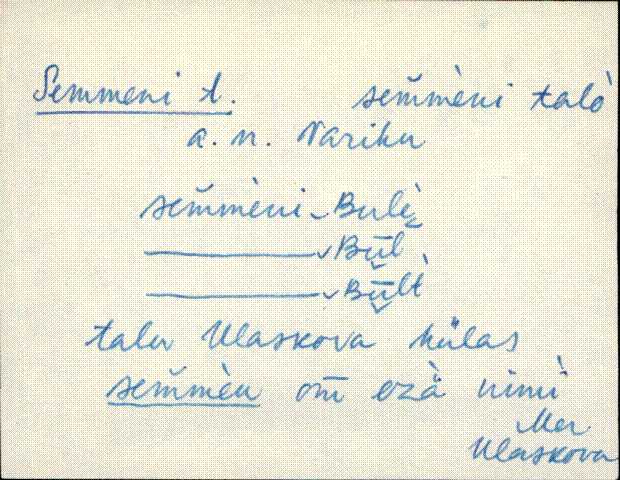 Semmeni t. sem̆mèni talò
a. n. Variku
sem̆mèni Bulè
——— Būl
——— Būlt
talu Ulaskova külas
sem̆mèn om̄ ezà nimi
Mer
Ulaskova